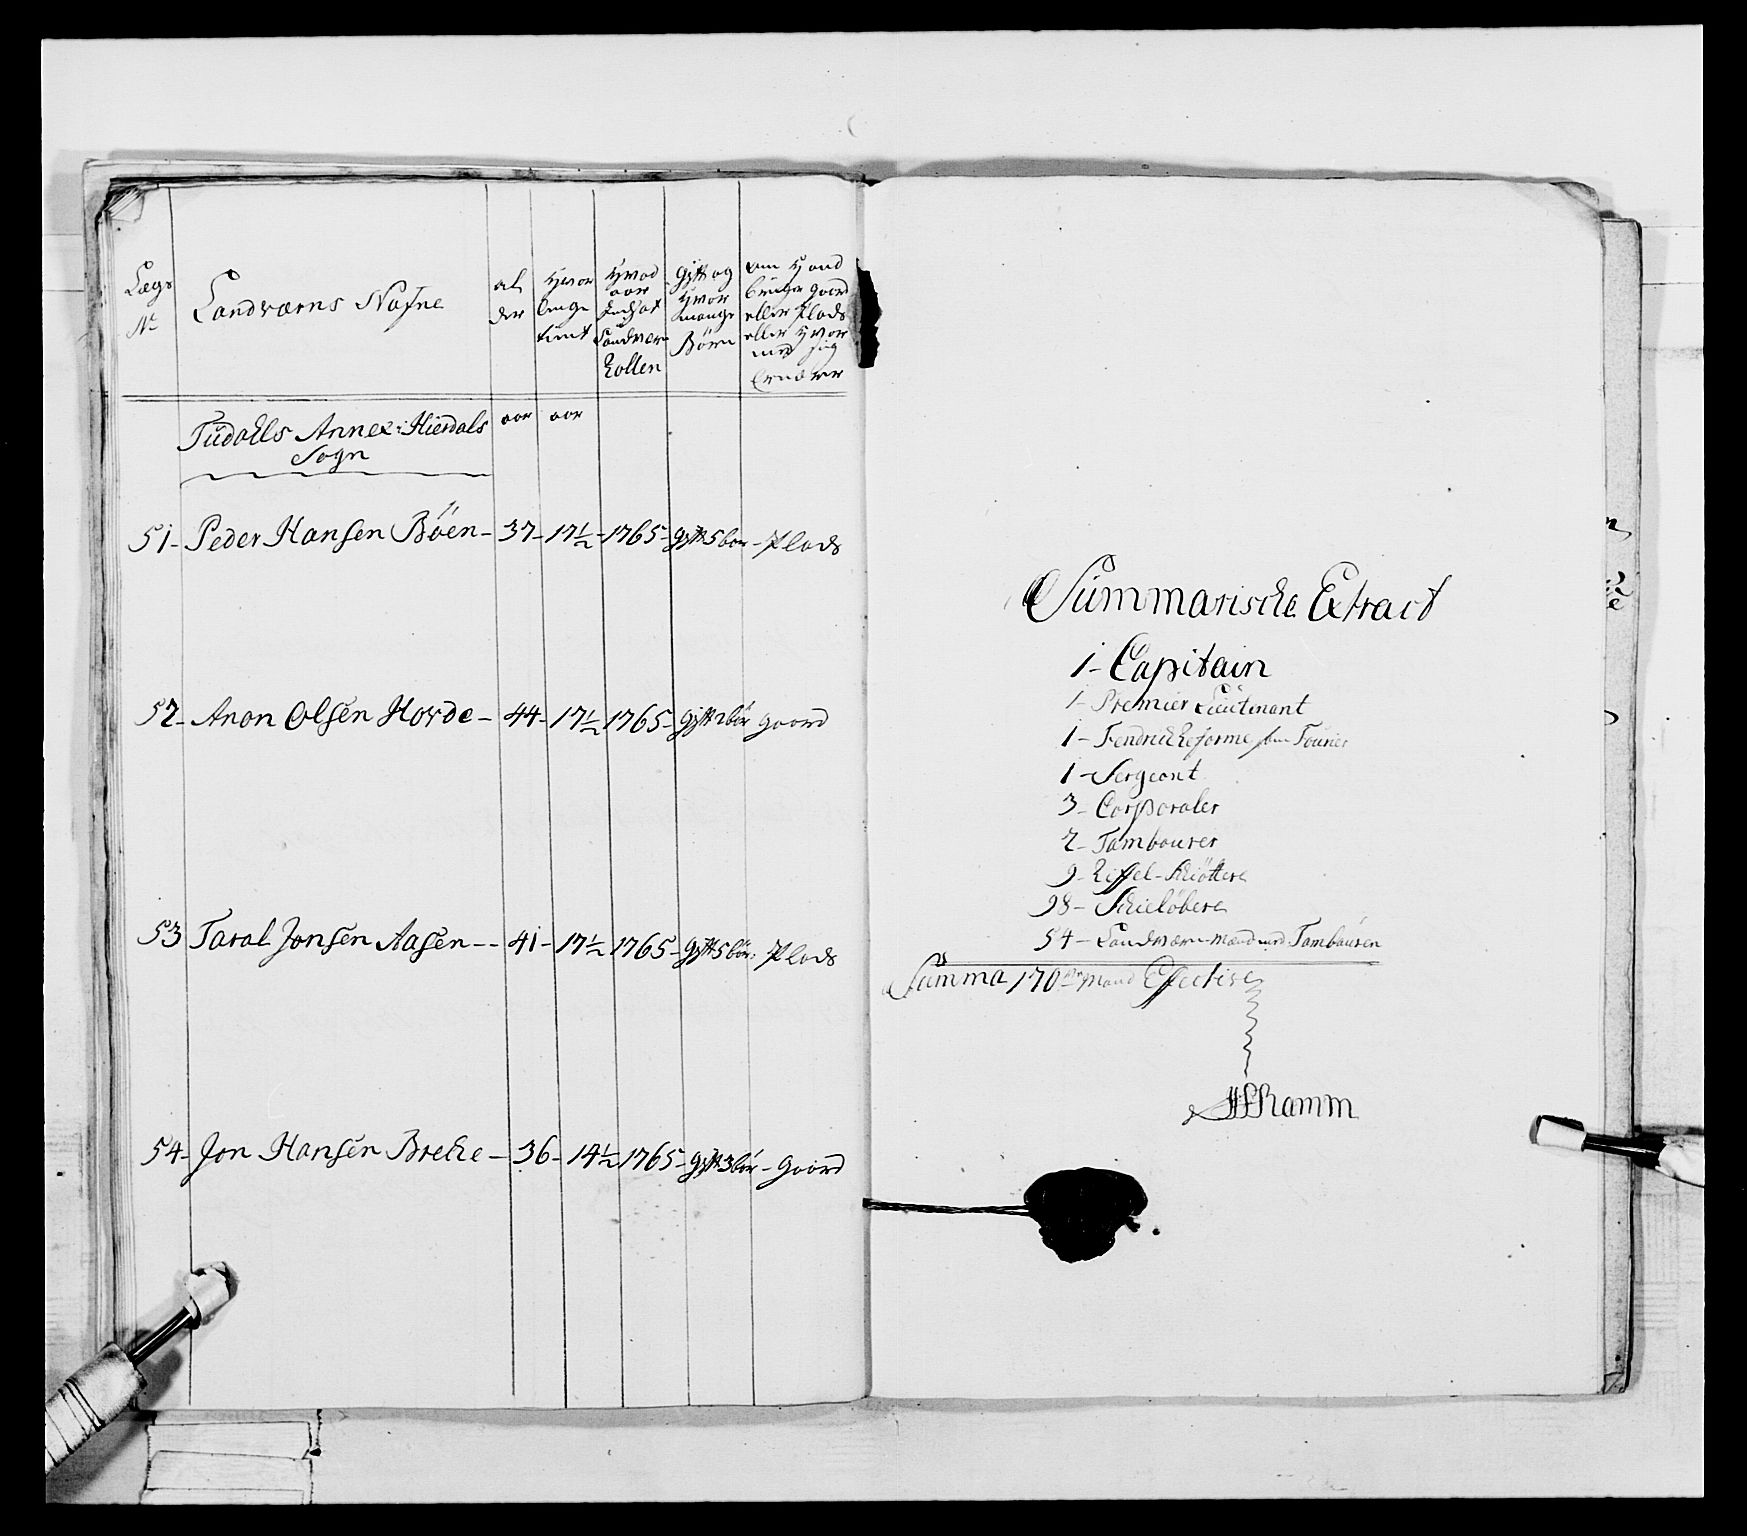 Lægs
No
Landværns Nafne
al
der
Hvor
lenge
tient
Hvad
aar
Indsat
Landværn
Rollen
Gift og
Hvor
mange
Børn
om Hand
bruger Gaard
eller Plads
eller Hvor
med sig
Ernærer
Tudahls Annex: Hierdals
Sogn
aar aar
51- Peder Hansen Böen- 37- 17½- 1765- gift 5 bør- Plads
52- Anon Olsen Hovde- 44- 17½ 1765- gift 2 bör gaard
53 Taral Jonsen Aasen-- 41- 17½ 1765- gift 5 bör. Plads
54- Jon Hansen Breche- 36- 14½ 1765- gift 3 bör- Gaard
Summarische Extract
1- Capitain
1- Premier Lieutinant
1- Fendrich Reforme som Fourier
1- Sergeant
3- Corporaler
2- Tambourer
9- Riffel-Skiöttere
98- Skielöbere
54- Landværn-Mænd med Tambouren
Summa 170 Mand Effective
HRamm